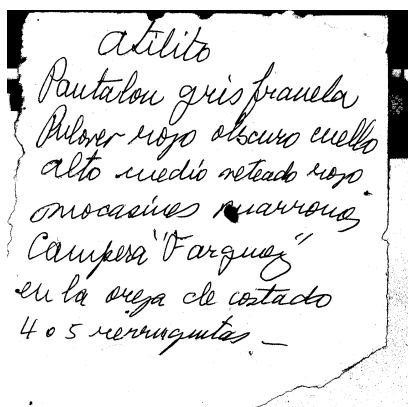 atilito
Pantalon gris franela
Pulover rojo obscuro cuello
alto medio veteado rojo
mocasines marrones
Campera "Varguez"
en la oreja de costado
4 o 5 verruguitas._